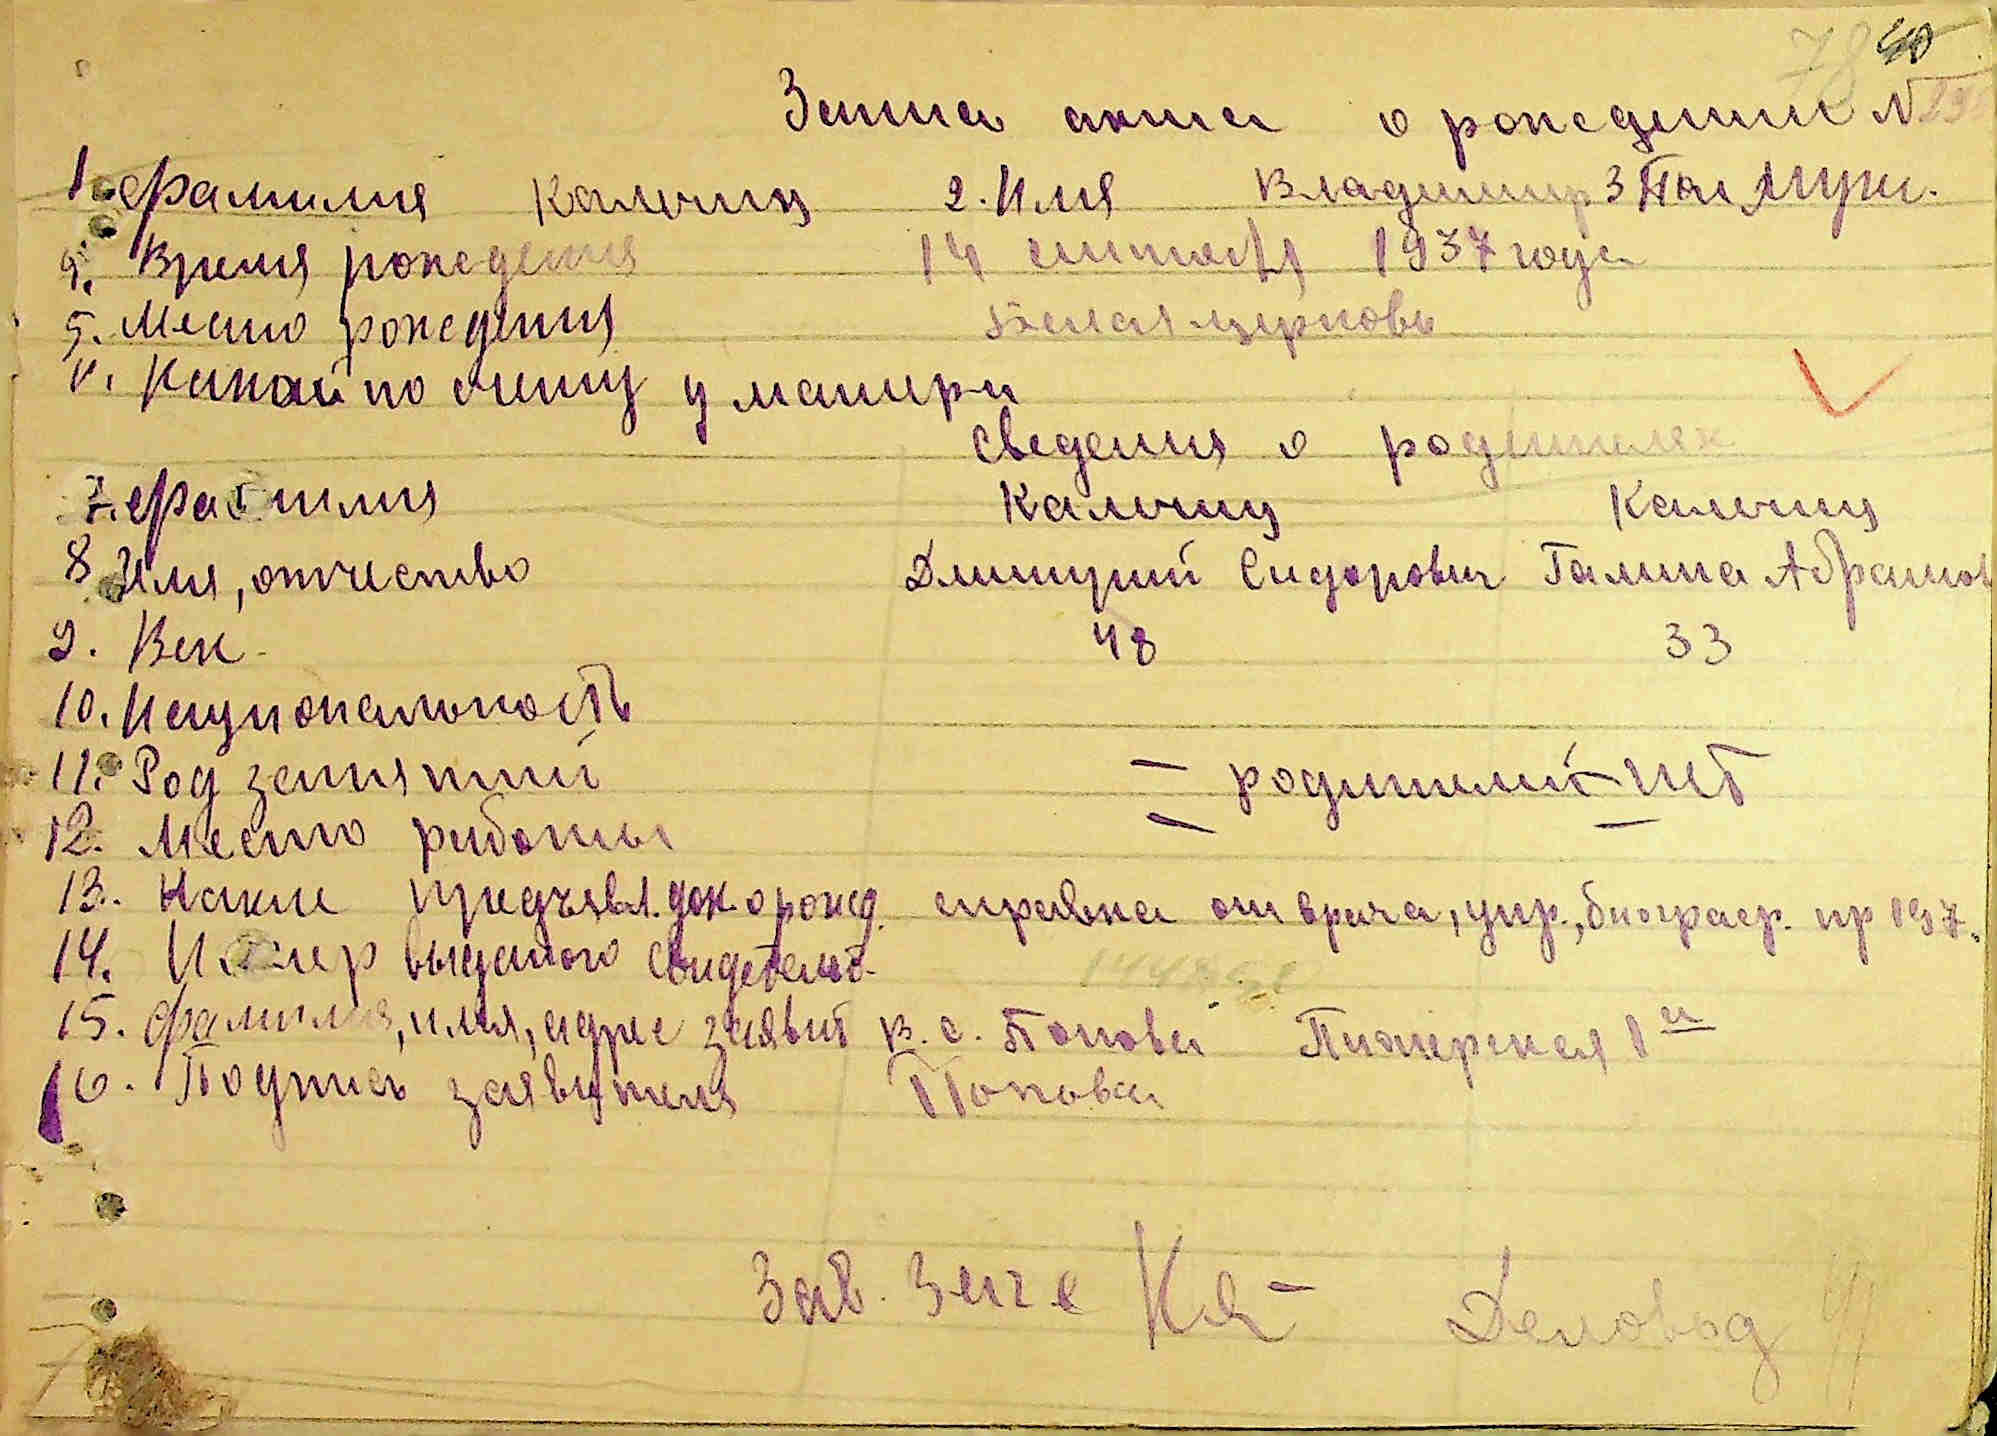 78 40
Запис акта о рождении N
1. Фамилия Кальчиц 2. Имя Владимир 3 Пол Муж.
4. Время рождения 14 сентября 1937 года
5. Место рождения Белая церковь
6. Какой по счету у матери
Сведения о родителях
7. Фамилия Кальчиц Кальчиц
8 Имя, отчество Дмитрий Сидорович Галина Абрамов
9. Век 48 33
10. Национальность
11. Род занятий — родителей нет
12. Место работы
13. Какие предъявл. док. о рожд. справка от врача, упр., биограф. пр 1937.
14. Номер выданого свидетельст.
15. Фамилия, имя, адрес заявит В. С. Попова Пионерская 1
16. Подпись заявителя Попова
Зав. Загс Деловод